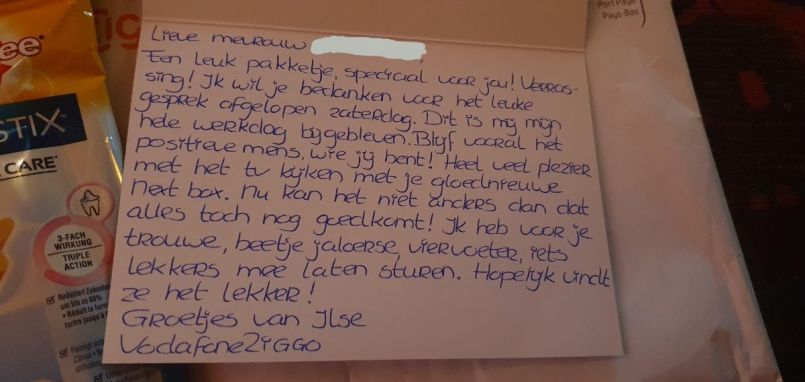 Port Paye
Pays-Bas
Lieve mevrouw
Een leuk pakketje, speciaal voor jou! Verras-
sing! Ik wil je bedanken voor het leuke
gesprek afgelopen zaterdag. Dit is mij mijn
hele werkdag bijgebleven. Blijf vooral het
positieve mens, wie jij bent! Heel veel plezier
met het tv kijken met je gloednieuwe
next box. Nu kan het niet anders dan dat
alles toch nog goedkomt! Ik heb voor je
trouwe, beetje jaloerse, viervoeter, iets
lekkers mee laten sturen. Hopelijk vindt
ze het lekker!
Groetjes van Ilse
VodafoneZiGGO
ee
STIX
CARE
3-FACH
WIRKUNG
TRIPLE
ACTION
Reduziert Zahnstein
um bis zu 80%